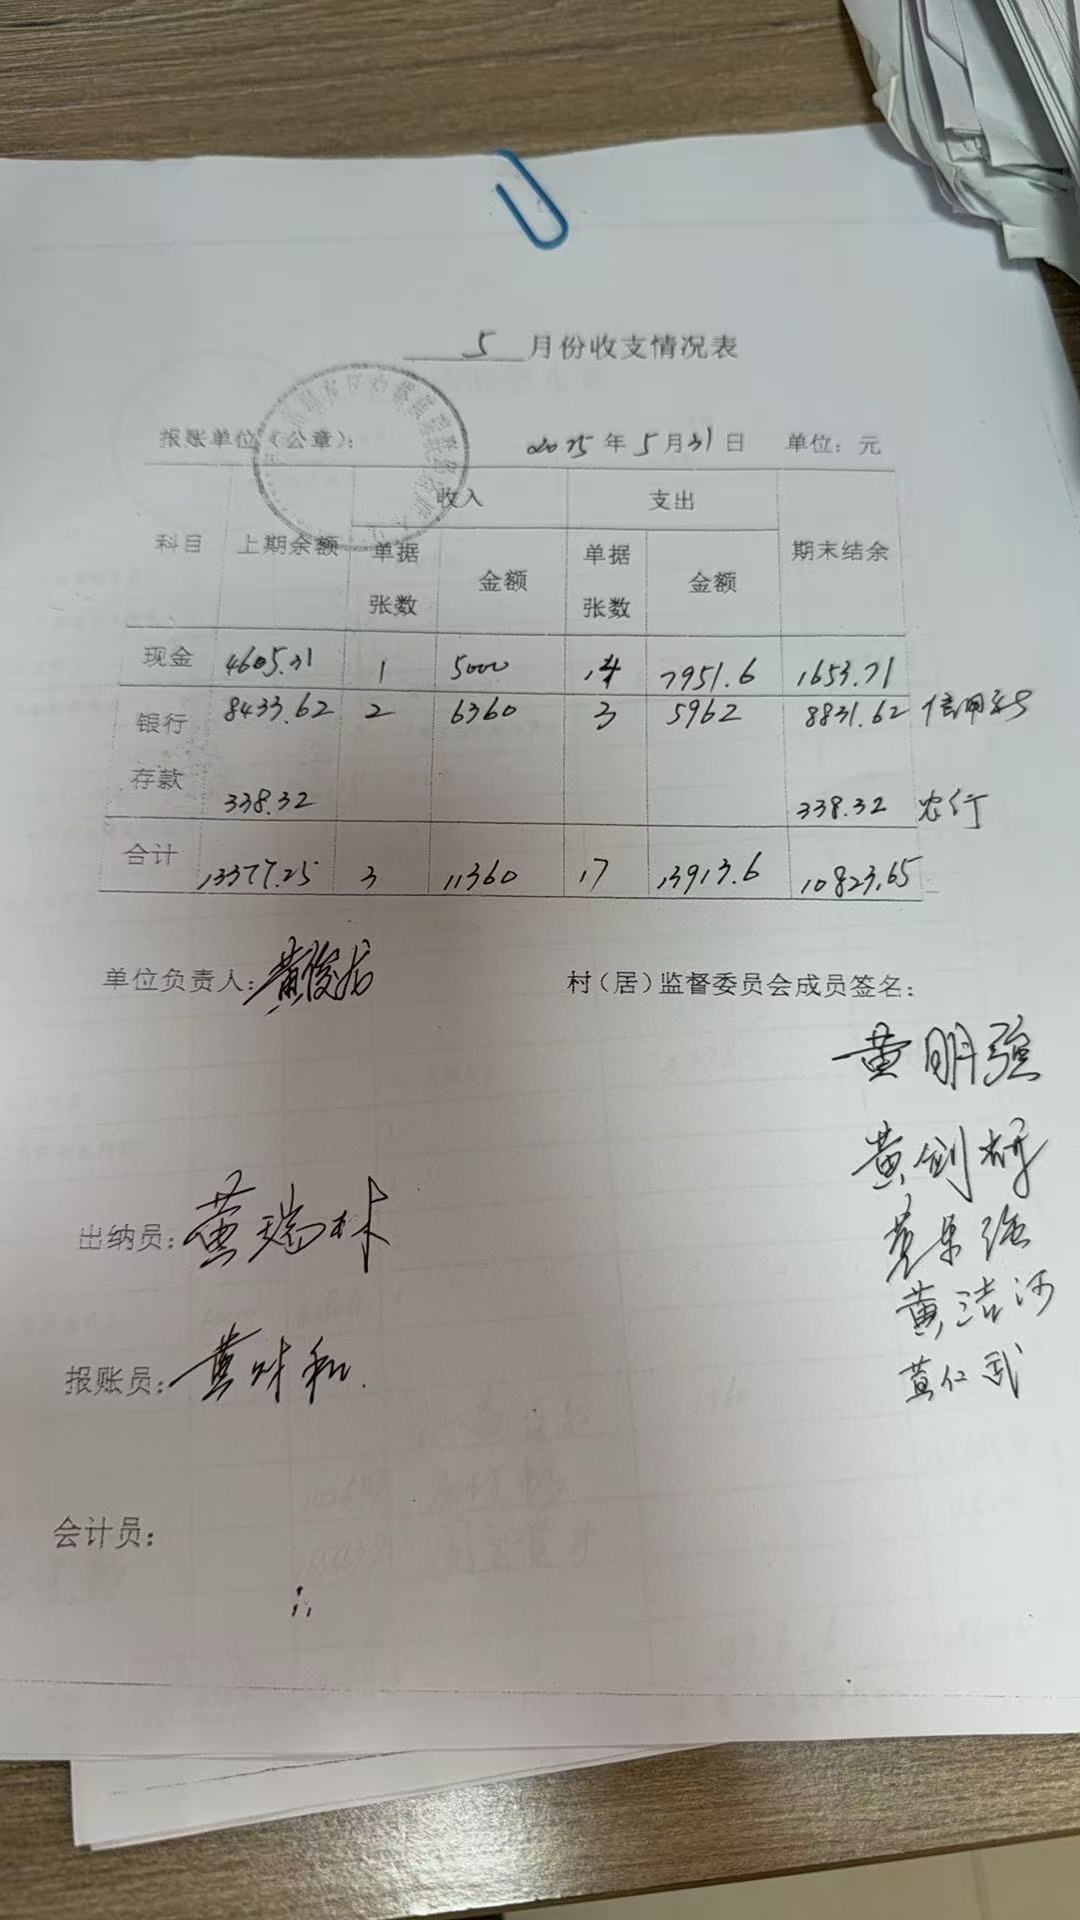 5月份收支情况表
报账单位（公章）： 2025年5月31日 单位：元
科目 上期余额 收入 支出 期末结余
单据张数 金额 单据张数 金额
现金 4605.31 1 5000 14 7951.6 1653.71
银行存款 8433.62 2 6360 3 5962 8831.62 信用社
338.32 338.32 农行
合计 13377.25 3 11360 17 13913.6 10823.65
单位负责人：黄俊龙 村（居）监督委员会成员签名：
黄明强
黄剑
出纳员：黄瑞林
黄洁河
报账员：黄
黄仁武
会计员：